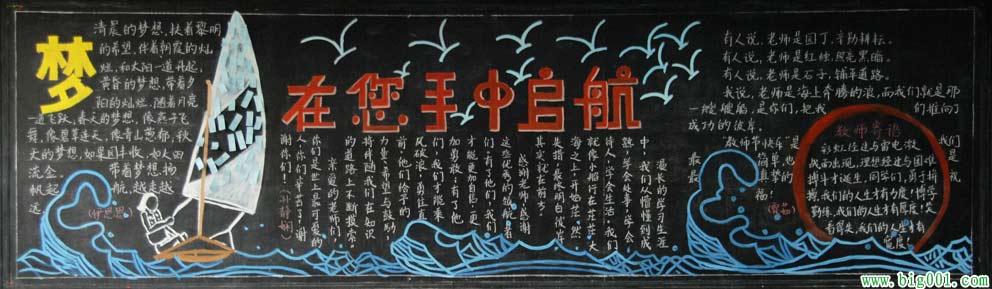 梦
清晨的梦想,扶着黎明
的希望,伴着朝霞的灿
烂,和太阳一道升起,
黄昏的梦想,带着夕
阳的灿烂,随着月亮
一道飞跃,春天的梦想,像燕子飞
舞,像碧草连天,像青山葱郁,秋
天的梦想,如果园丰收,如大四
流金。带着梦想,扬
帆起航,越走越
远
在您手中启航
漫长的学习生涯
中,我们从懵懂到成
熟,学会处事,学会
待人,学会生活,我们
就像小船行在茫茫大
海之上,开始茫然,
其实就在前方。
感谢老师,感谢
这些优秀的领航者
们,有了他们,我们
才能更加自信,更
加勇敢,有了他
们,我们才能乘
风破浪,勇往直
前,他们给予的
力量,希望与鼓励,
持伴随我们在知识
的道路上不断摸索。
亲爱的老师们,
你们是世上最可爱的
人,你们辛苦了!谢
谢你们!
有人说,老师是园丁,辛勤耕耘。
有人说,老师是红烛,照亮黑暗。
有人说,老师是石子,铺平道路。
我说,老师是海上奔腾的浪,而我们就是那
一艘艘船,是你们,把我们推向了
成功的彼岸。
"教师节快乐"是我们是
最简单,也是最
真的梦
福!
教师寄语
彩虹经过与雷电激
战而出现,理想经过与困难
拼斗才诞生,同学们,勇于拼
搏,我们的人生才有力度!博学
勤练,我们的人生才有厚度!
有容乃大,我们的人生才有
宽度!
www.big001.com